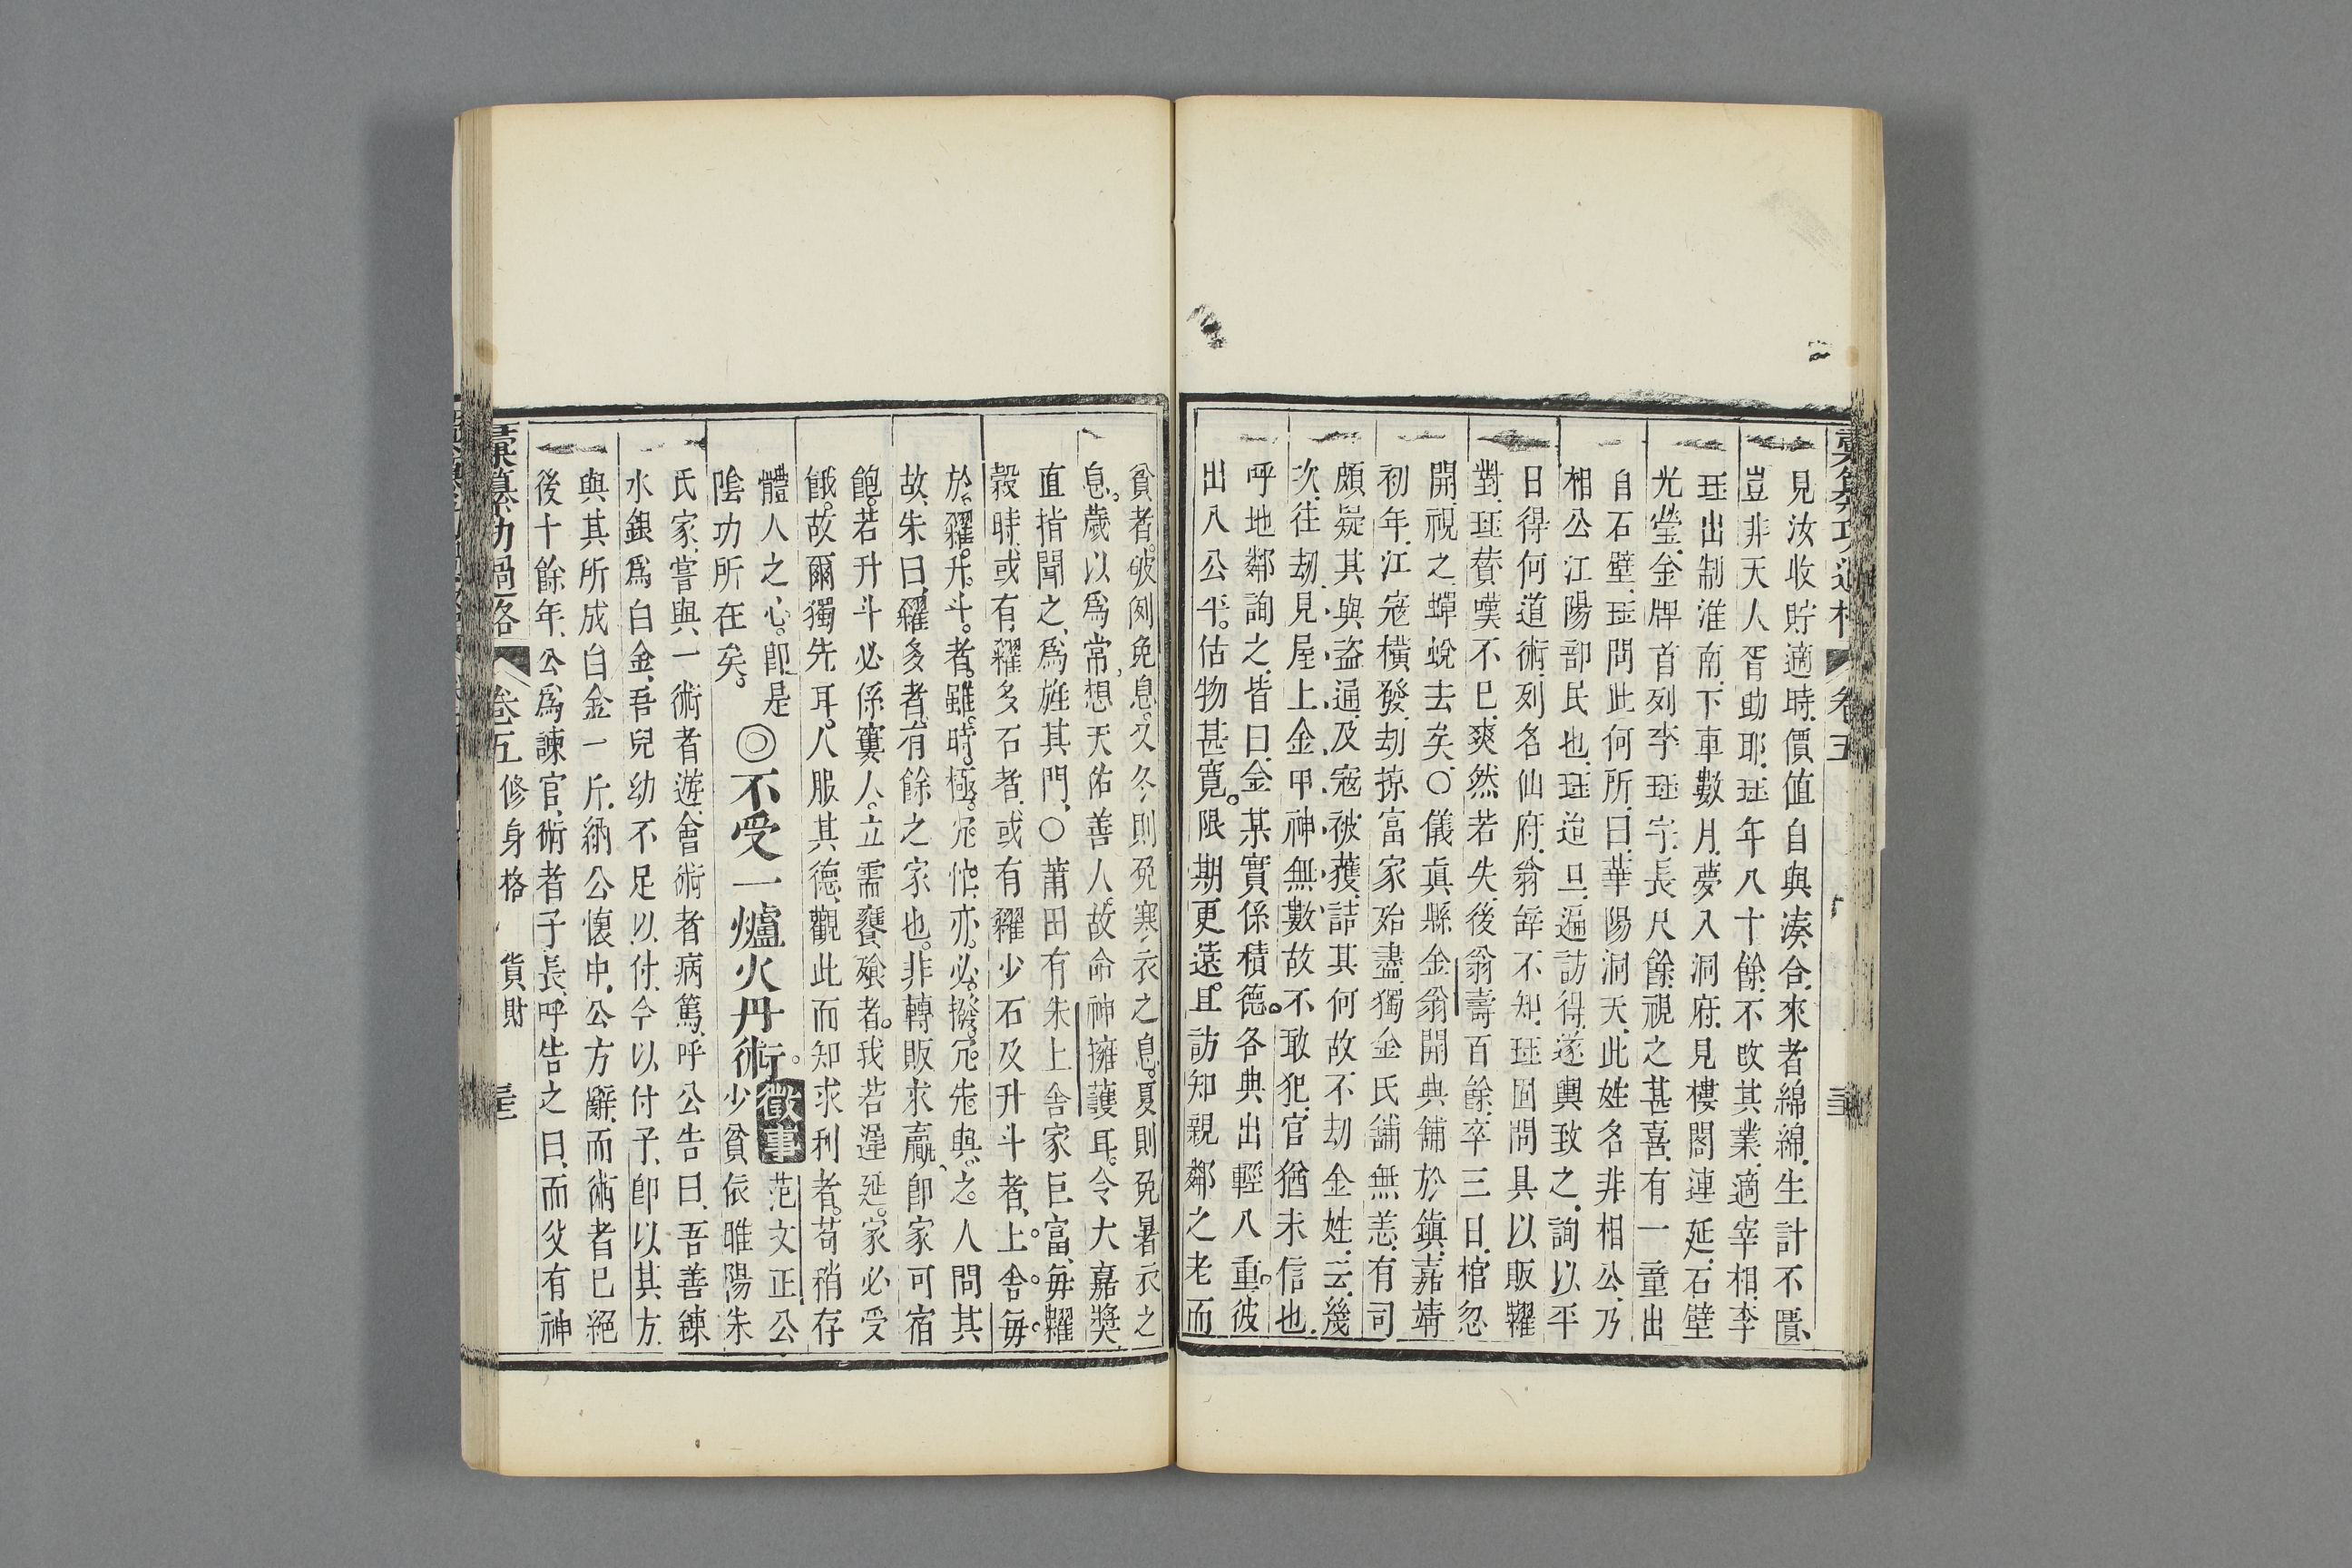 見汝收貯適時價值自與湊合來者綿綿生計不匱
豈非天人胥助耶珏年八十餘不改其業適宰相李
珏出制淮南下車數月夢入洞府見樓閣連延石壁
光瑩金牌首列李珏字長尺餘視之甚喜有一童出
自石壁珏問此何所曰華陽洞天此姓名非相公乃
相公江陽部民也珏迨旦遍訪得遂輿致之詢以平
日得何道術列名仙府翁辭不知珏固問具以販糴
對珏贊嘆不已爽然若失後翁壽百餘卒三日棺忽
開視之蟬蛻去矣○儀真縣金翁開典舖於鎮嘉靖
初年江寇橫發刧掠富家殆盡獨金氏舖無恙有司
頗疑其與盜通及寇被獲詰其何故不刧金姓云幾
次往刼見屋上金甲神無數故不敢犯官猶未信也
呼地鄰詢之皆曰金某實係積德各典出輕入重彼
出入公平估物甚寬限期更遠且訪知親鄰之老而
貧者破例免息又冬則免寒衣之息夏則免暑衣之
息歲以爲常想天佑善人故命神擁護耳令大嘉獎
直指聞之爲旌其門○莆田有朱上舍家巨富每糶
穀時或有糶多石者或有糶少石及升斗者上舍每
於糶升斗者雖時極冗忙亦必撥冗先與之人問其
故朱曰糴多者有餘之家也非轉販求贏卽家可宿
飽若升斗必係窶人立需饔飱者我若遲延家必受
餓故爾獨先耳人服其德觀此而知求利者苟稍存
體人之心卽是
陰功所在矣
◎不受一爐火丹術
徵事
范文正公
少貧依睢陽朱
氏家嘗與一術者遊會術者病篤呼公告曰吾善鍊
水銀爲白金吾兒幼不足以付今以付子卽以其方
與其所成白金一斤納公懷中公方辭而術者已絕
後十餘年公爲諫官術者子長呼告之曰而父有神
彙纂功過格
卷五
修身格
貨財